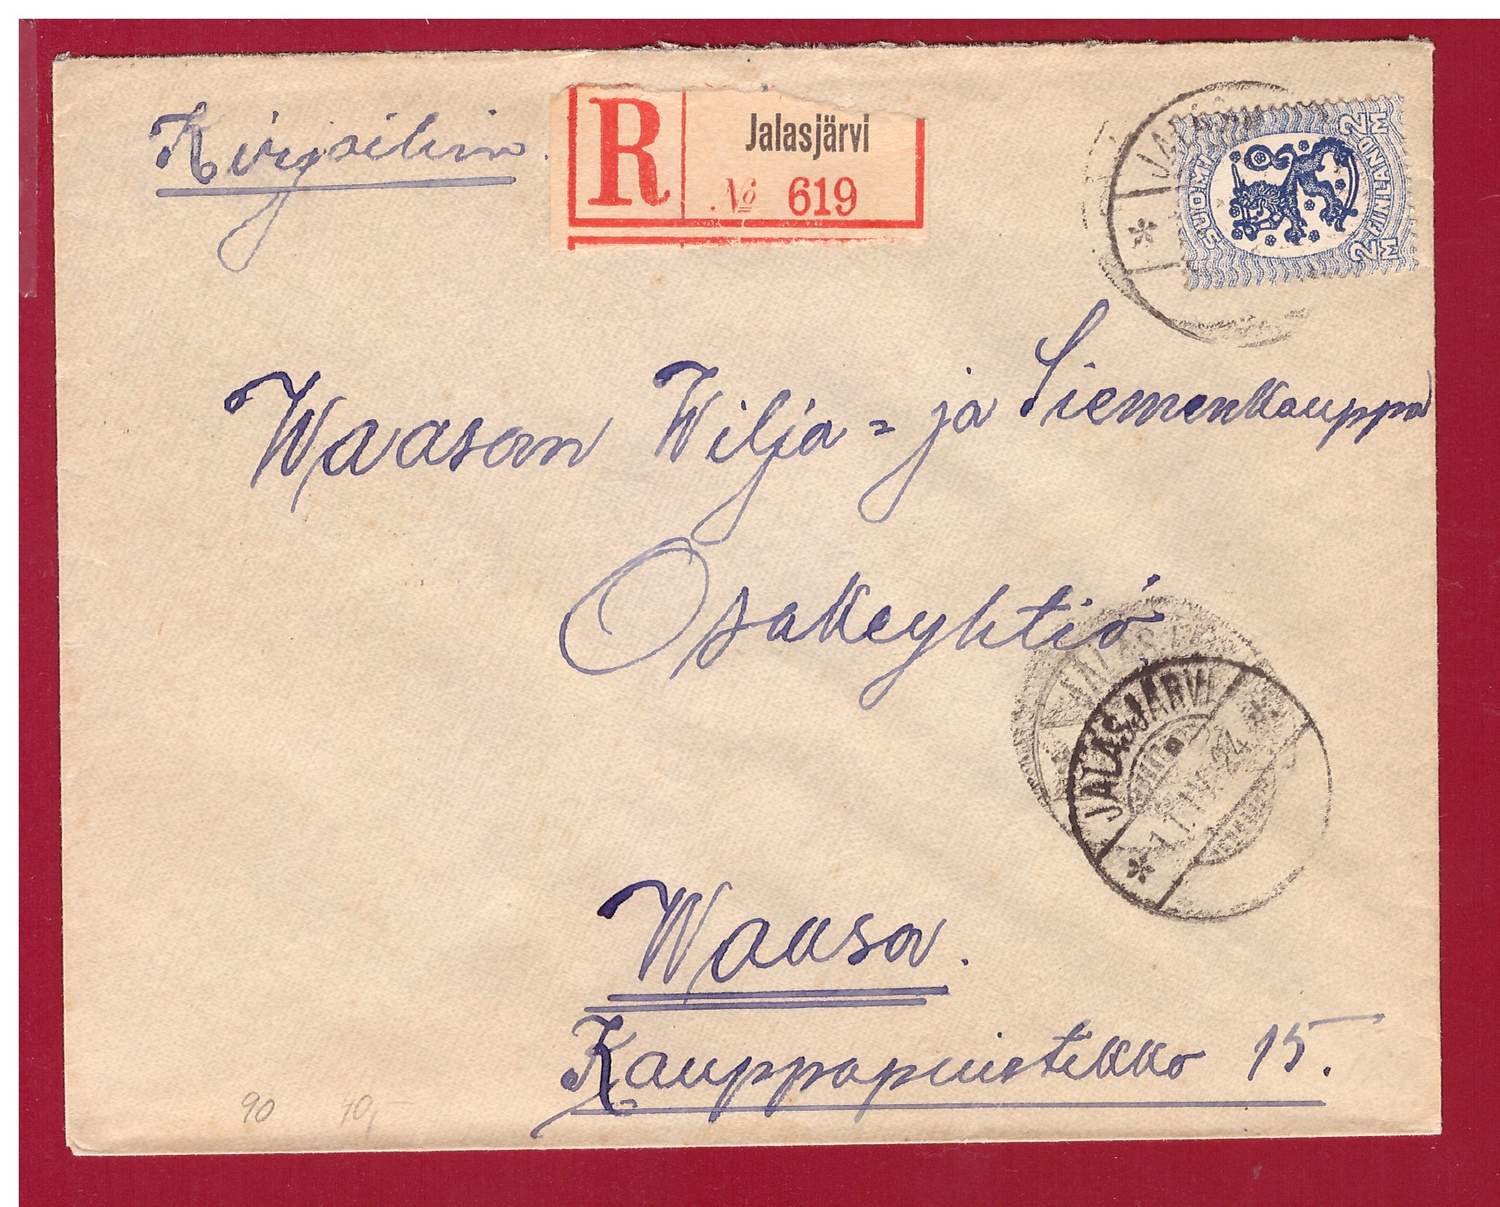 Kirjeihin.
R
Jalasjärvi
№ 619
SUOMI FINLAND
2 M
2 M
Waasan Wilja= ja Siemenkauppa
Osakeyhtiö
JALASJÄRVI
Waasa.
Kauppapuistikko 15.
90 40,-